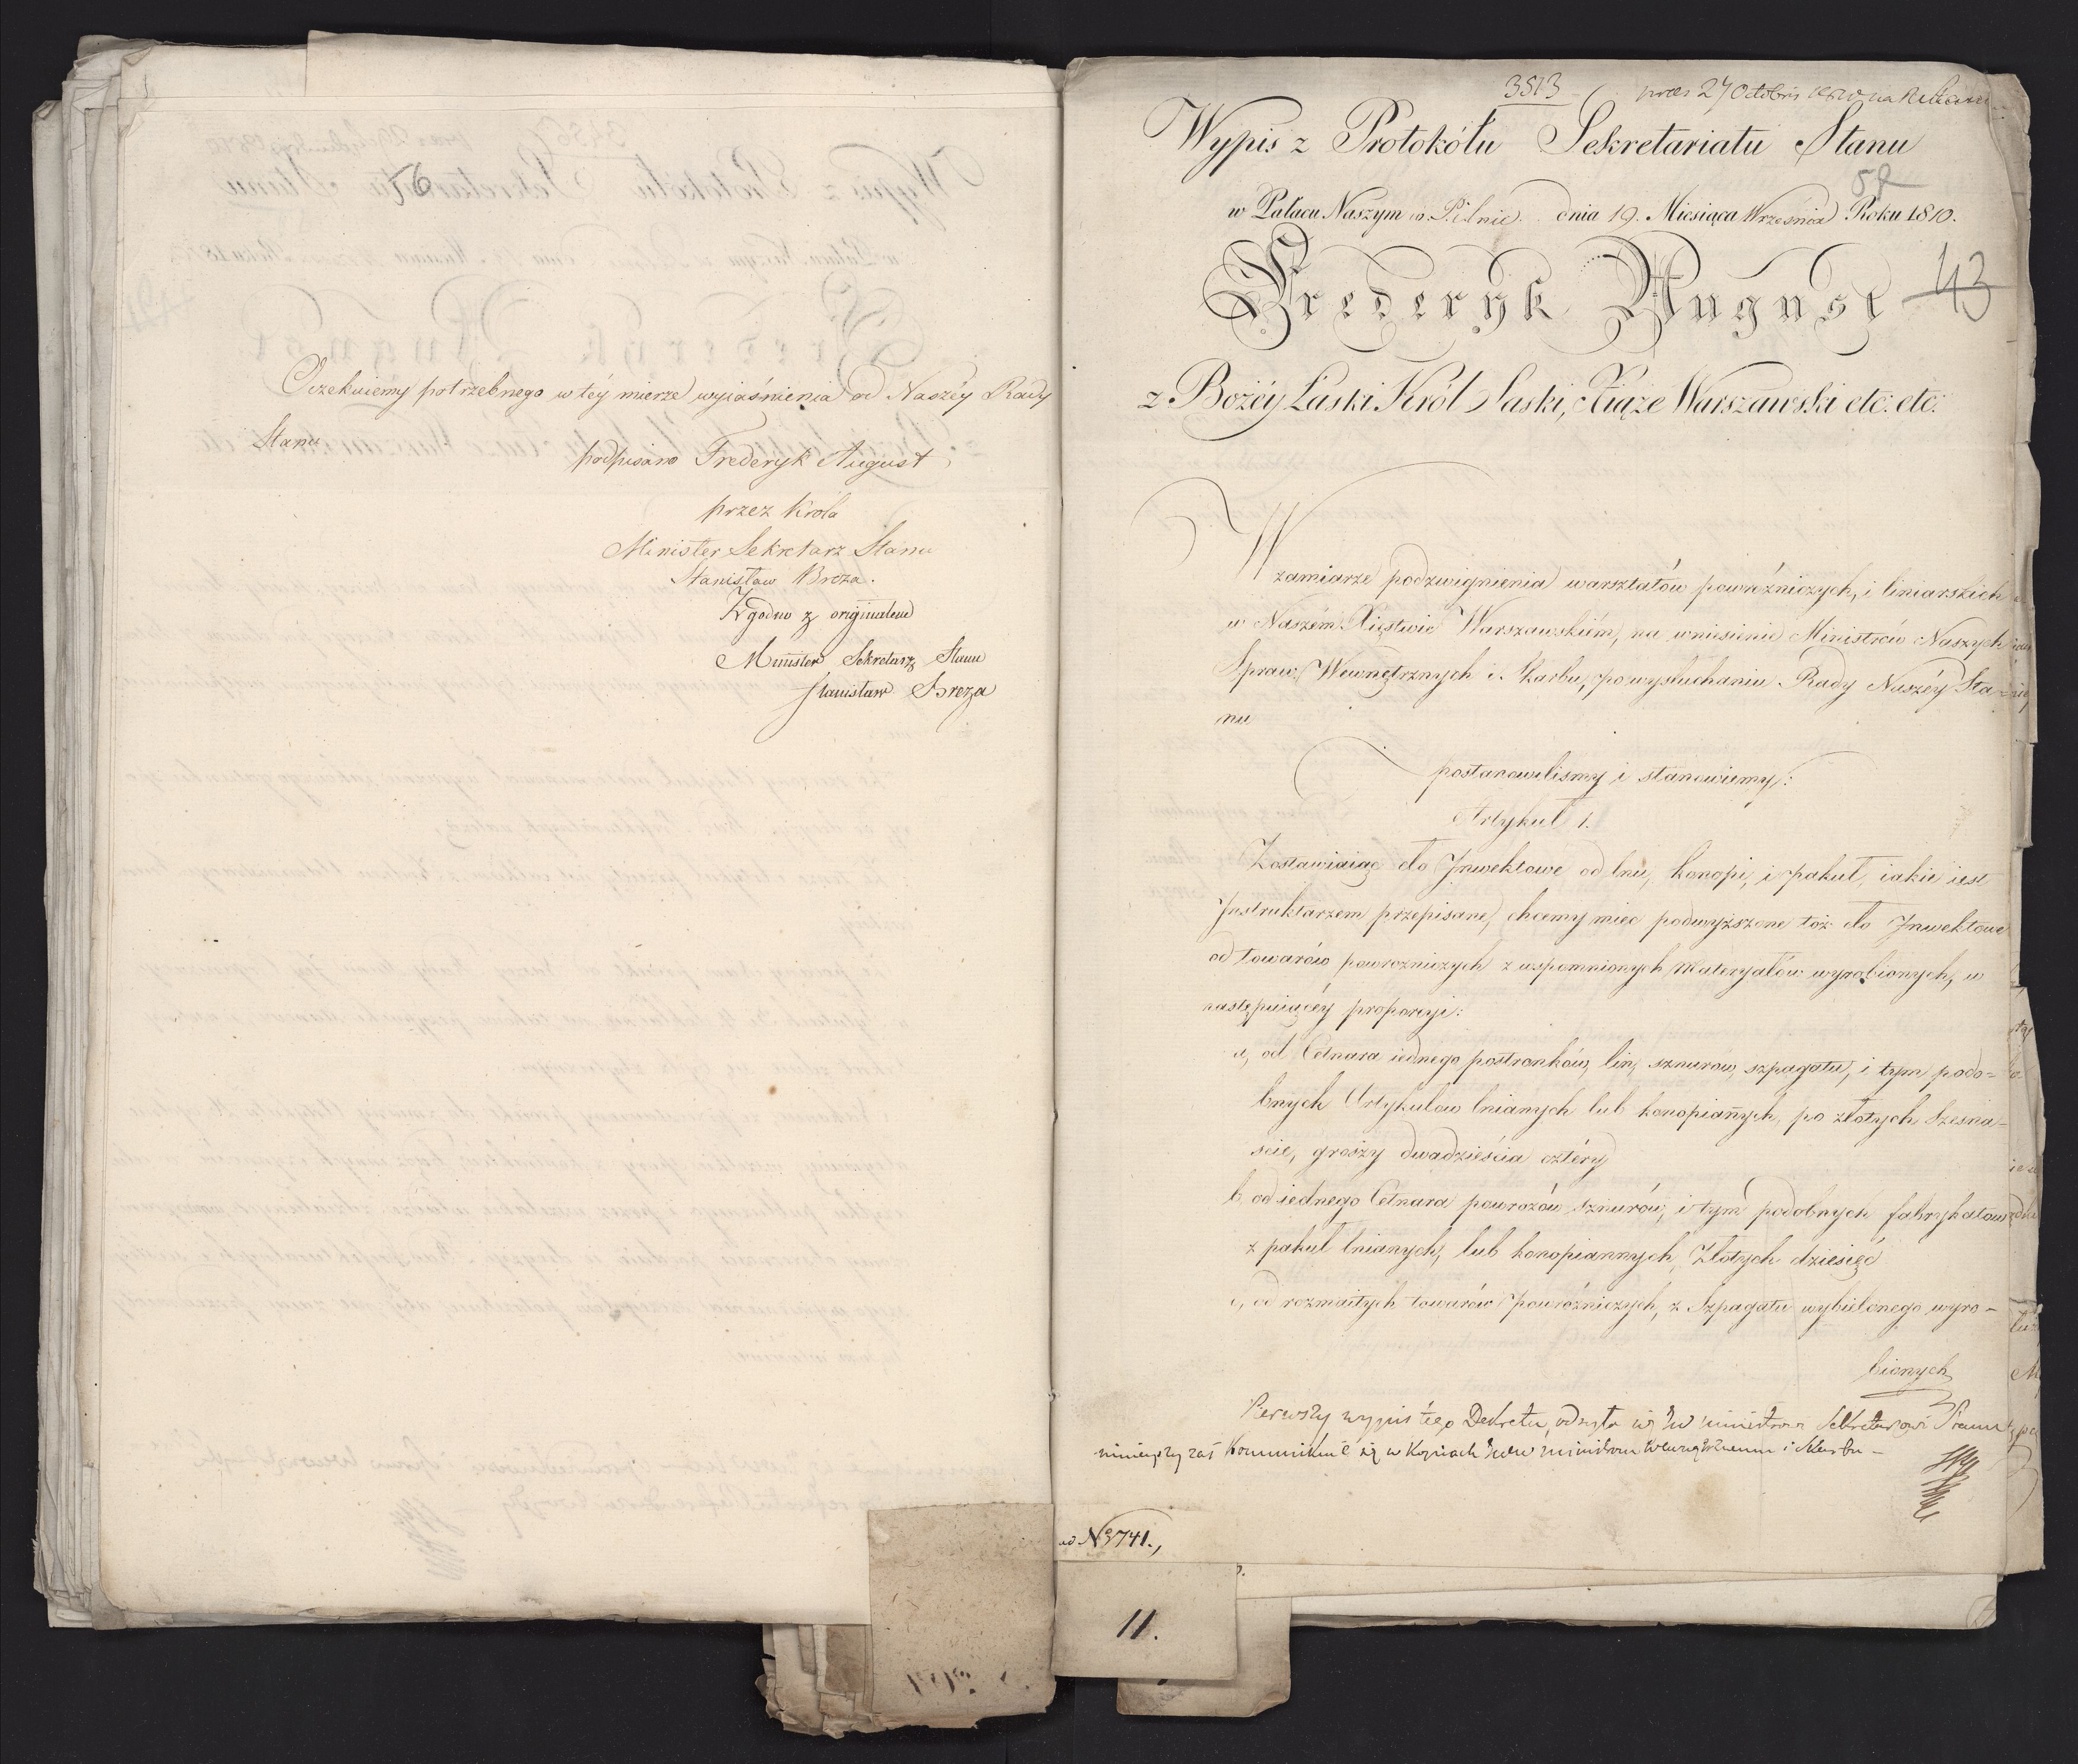 Oczekuiemy potrzebnego w téy mierze wyiaśnienia od Naszéy Rady
Stanu
podpisano Fryderyk August
przez Króla
Minister Sekretarz Stanu
Stanisław Breza.
Zgodno z originalem
Minister Sekretarz Stanu
Stanisław Breza
3513
praes 27 Octobris 1810 na
Wypis z Protokółu Sekretariatu Stanu
58
w Pałacu Naszym w Pilnic. dnia 19. Miesiąca Września Roku 1810.
Frederyk August
43
z Bożéy Łaski Król Saski, Xiąże Warszawski etc: etc:
W zamiarze podzwignienia warsztatów powróźniczych, i liniarskich
w Naszém Xięstwie Warszawskiém, na wniesienie Ministrów Naszych
Spraw Wewnętrznych i Skarbu, po wysłuchaniu Rady Naszéy Sta=
nu
postanowilismy i stanowiemy:
Artykuł 1.
Zostawiaiąc cło Jnwektowe od lnu, konopi, i pakuł, iakie iest
Jnstruktarzem przepisane, chcemy miec podwyższone toż cło Jnwektowe
od towarów powrozniczych z wspomnionych materyałów wyrobionych, w
następuiącéy proporcyi:
a, od Cetnara iednego postronków, lin, sznurow, szpagatu, i tym podo=
bnych Artykułow lnianych lub konopiannych, po złotych szesna-
scie, groszy dwadzieścia cztéry
b, od iednego Cetnara powrozów sznurów, i tym podobnych fabrykatów
z pakuł lnianych, lub konopiannych, Złotych dziesięć
c, od rozmaitych towarów powróźniczych, z Szpagatu wybielonego wyro-
bionych
Pierwszy wypis tego Dekretu, odsyła się JW Ministrowi Sekretarzowi Stanu
ninieyszy zaś Kommunikuie się w Kopiach JWW Ministrom Wewnętrznemu i Skarbu -
ad N 3741.,
11.